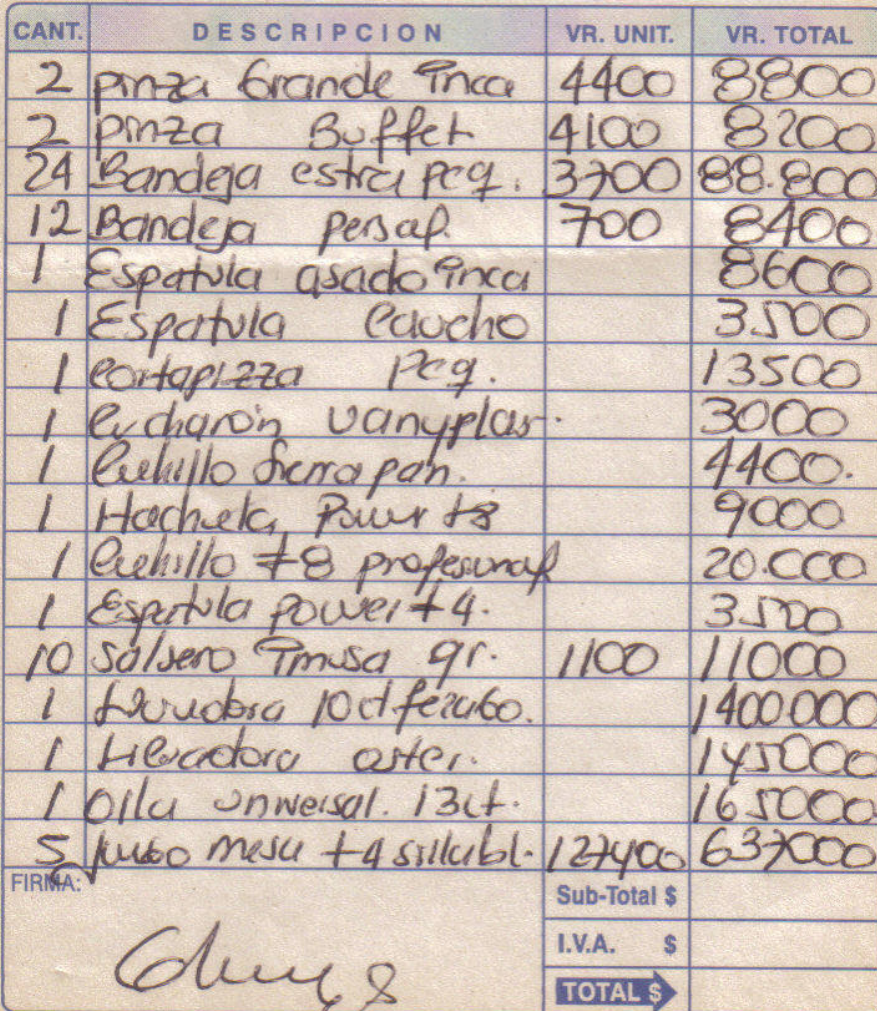 CANT. DESCRIPCION VR. UNIT. VR. TOTAL
2 pinza Grande Inca 4400 8800
2 pinza Buffet 4100 8200
24 Bandeja estra peq. 3700 88.800
12 Bandeja persal. 700 8400
1 Espatula asado Inca 8600
1 Espatula Caucho 3500
1 Cortapizza Peq. 13500
1 Cucharón Vanyplas. 3000
1 Cuchillo Sierra pan. 4400.
1 Hachuela Power +8 9000
1 Cuchillo #8 profesional 20.000
1 Espatula power +4. 3500
10 Salsero Imusa gr. 1100 11000
1 10 1400.000
1 oster. 145000
1 Olla universal. 13Lt. 165000
5 Juego mesa +4 silla bl. 127400 637000
FIRMA:
Sub-Total $
I.V.A. $
TOTAL $